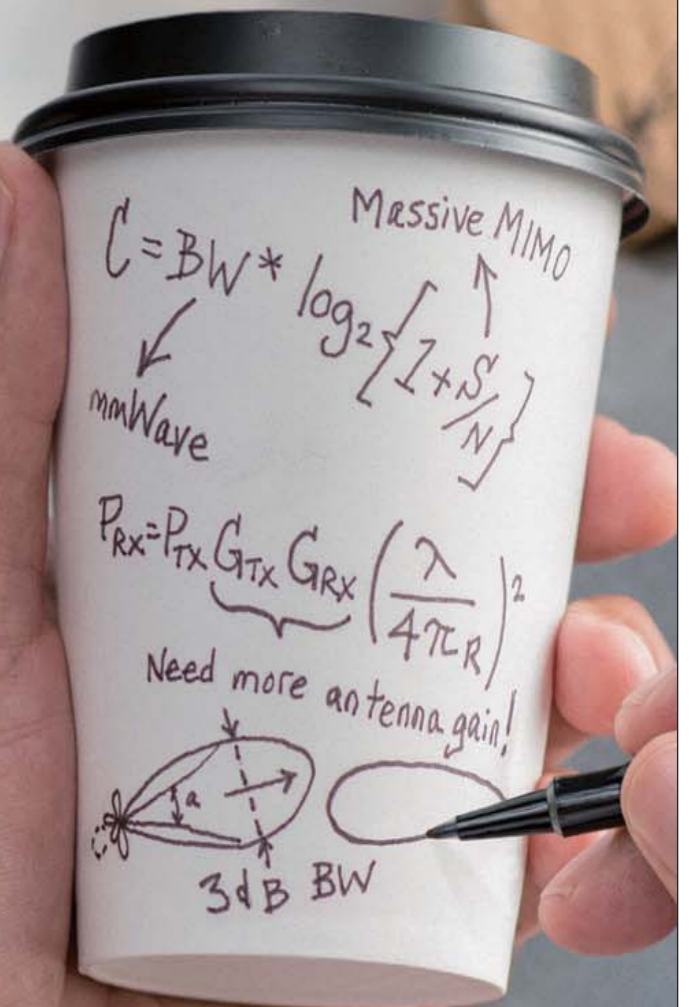 Massive MIMO
C = BW * log₂{1+S/N}
mmWave
P_RX = P_TX G_TX G_RX (λ/4πR)²
Need more antenna gain!
a
3dB BW